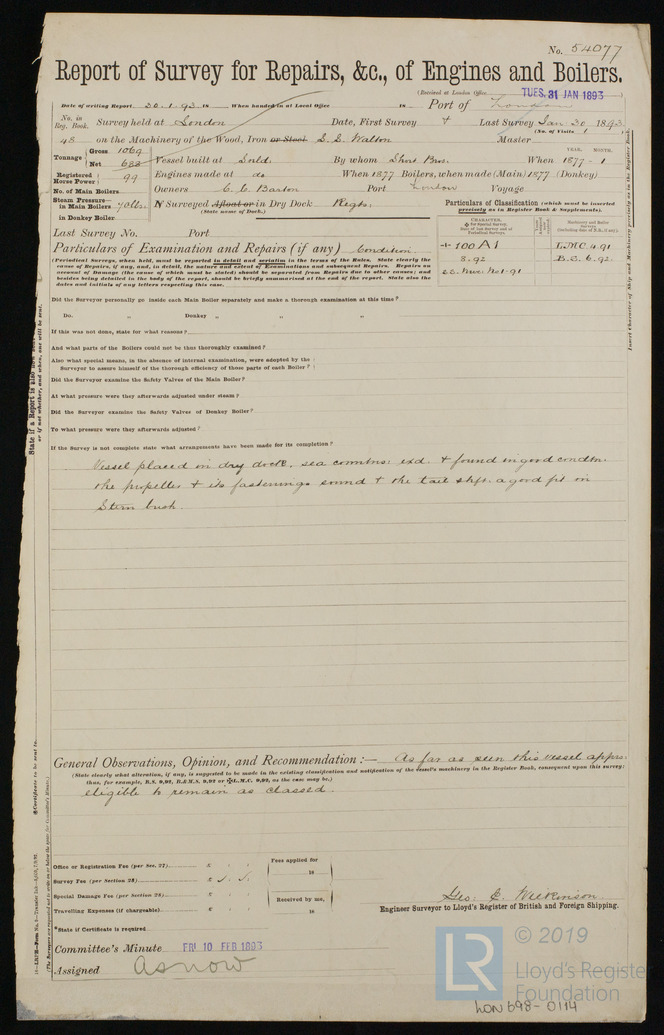 No. 54077
Report of Survey for Repairs, &c., of Engines and Boilers.
(Received at London Office TUES. 31 JAN 1893
Date of writing Report 30.1.93 18 When handed in at Local Office 18 Port of London
No. in Reg. Book. Survey held at London Date, First Survey Last Survey Jan. 30 1893
(No. of Visits 1
48 on the Machinery of the Wood, Iron or Steel S. S. Walton Master
Tonnage Gross 1069 Net 683 Vessel built at Sorld. By whom Short Bros. When 1877 - 1
YEAR. MONTH.
Registered Horse Power 99 Engines made at do When 1877 Boilers, when made (Main) 1877 (Donkey)
No. of Main Boilers Owners C. C. Barton Port London Voyage
Steam Pressure in Main Boilers 70lbs
in Donkey Boiler
If Surveyed Afloat or in Dry Dock Regts.
(State name of Dock.)
Particulars of Classification (which must be inserted precisely as in Register Book & Supplements).
+ 100 A1 LMC 4.91
8.92 B.S. 6.92
Last Survey No. Port
Particulars of Examination and Repairs (if any) Condition
(Periodical Surveys, when held, must be reported in detail and seriatim in the terms of the Rules. State clearly the
cause of Repairs, if any, and, in detail, the nature and extent of Examinations and subsequent Repairs. Repairs on
account of Damage (the cause of which must be stated) should be separated from Repairs due to other causes; and
besides being detailed in the body of the report, should be briefly summarised at the end of the report. State also the
dates and initials of any letters respecting this case.
Did the Surveyor personally go inside each Main Boiler separately and make a thorough examination at this time?
Do. „ Donkey „ „ „
If this was not done, state for what reasons?
And what parts of the Boilers could not be thoroughly examined?
Also what special means, in the absence of internal examination, were adopted by the
Surveyor to assure himself of the thorough efficiency of those parts of each Boiler?
Did the Surveyor examine the Safety Valves of the Main Boiler?
At what pressure were they afterwards adjusted under steam?
Did the Surveyor examine the Safety Valves of Donkey Boiler?
To what pressure were they afterwards adjusted?
If the Survey is not complete state what arrangements have been made for its completion?
Vessel placed in dry dock, sea conntns: exd. & found in good condtn.
the propeller & its fastenings sound & the tail shft. a good fit in
Stern bush.
General Observations, Opinion, and Recommendation :— As far as seen this vessel appears
(State clearly what alteration, if any, is suggested to be made in the existing classification and notification of the vessel's machinery in the Register Book, consequent upon this survey:
thus, for example, B.S. 9,92, B.&M.S. 9,92 or L.M.C. 9,92, as the case may be.)
eligible to remain as classed.
Office or Registration Fee (per Sec. 27) £ : :
Survey Fee (per Section 28) £
Special Damage Fee (per Section 28) £ : :
Travelling Expenses (if chargeable) £ : :
Fees applied for
18
Received by me,
18
*State if Certificate is required
Geo. C. Wilkinson
Engineer Surveyor to Lloyd's Register of British and Foreign Shipping.
Committee's Minute FRI 10 FEB 1893
Assigned As now
LR
© 2019
Lloyd's Register
Foundation
LON 698-0114